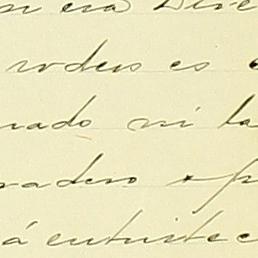 era Dive
rodeos es
rado ni la
radero
á entristec